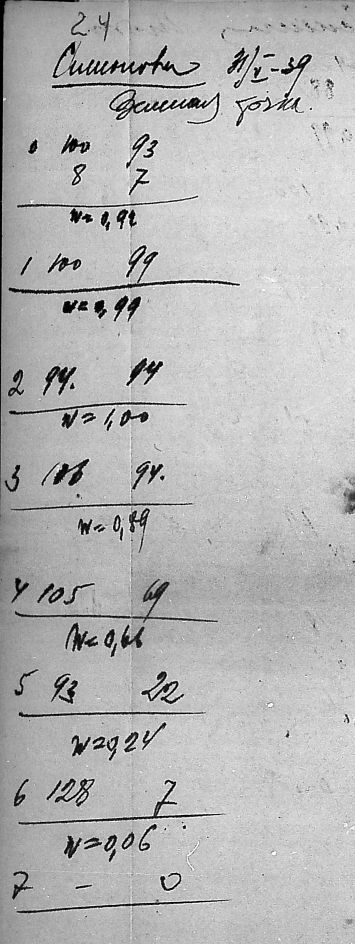 24
Симонова 31/V-39
точка.
0 100 93
8 7
w=0,92
1 100 99
w=0,99
2 94. 94
w=1,00
3 106 94.
w=0,89
4 105 69
w=0,66
5 93 22
w=0,24
6 128 7
w=0,06
7 - 0